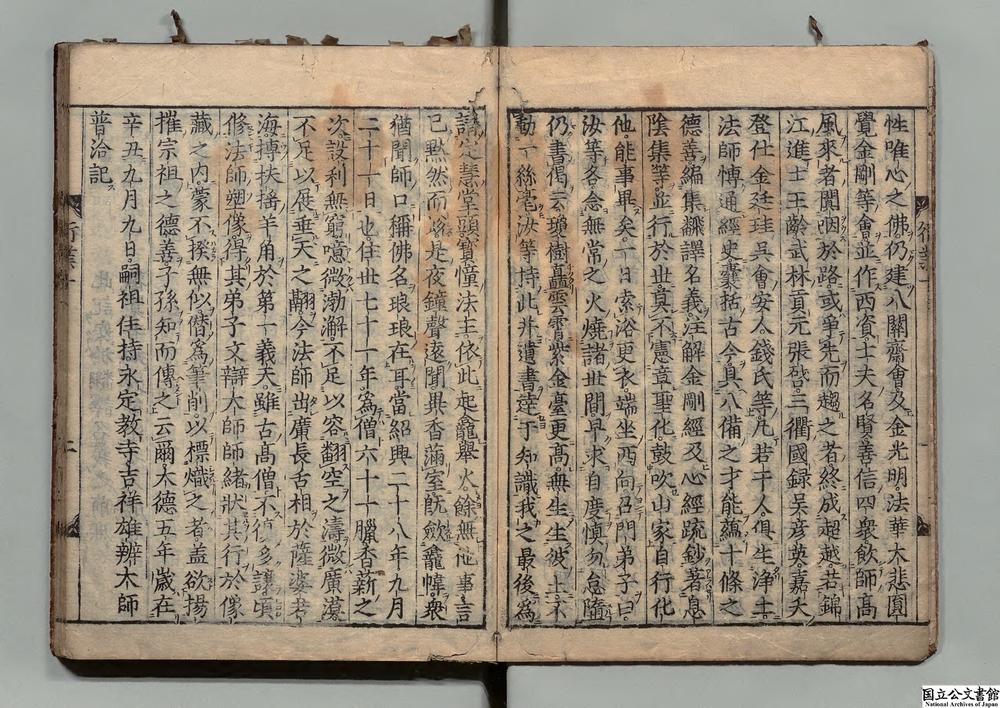 性唯心之佛仍建八關齋會及金光明法華大悲圓
覺金剛等會並作西資士夫名賢善信四衆飲師高
風來者闐咽於路或爭先而趨之者終成超越共錦
江進士王齡武林貢元張啓三衢國録吴彦英嘉夭
登仕金廷珪吴會安人錢氏等凡若干人俱生淨土
法師愽通經史囊括古今具八備之才能蘊十條之
德善編集飜譯名義注解金剛經及心經疏鈔著息
陰集等並行於世真不憲章聖化鼓吹山家自行化
他能事畢矣一日索浴更衣端坐西向召門弟子曰
汝等各念無常之火燒諸世間早求自度慎勿怠墮
仍書偈云瓊樹矗雲霄紫金臺更高無生生彼土不
動一絲毫汝等持此并遺書達于知識我之最後爲
講定慧堂頭寳憧法主依此起龕舉火餘無他事言
已黙然而逝是夜鐘聲遠聞異香滿室旣斂龕幃衆
猶聞師口稱佛名琅琅在耳當紹興二十八年九月
二十一日也住世七十一年爲僧六十一臘香薪之
次設利無窮噫微渤澥不足以容翻空之濤微廣漠
不足以展垂天之翩今法師出廣長舌相於薩婆若
海搏扶揺羊角於第一義天雖古高僧不 多讓頃
修法師塑像得其弟子文辯大師師緒狀其行於像
藏之内蒙不揆無似僭爲筆削以標熾之者盖欲揚
摧宗祖之德善子孫知而傳之云爾大德五年歲在
辛丑九月九日嗣祖住持永定教寺吉祥雄辨大師
普洽記
行業
二
行業